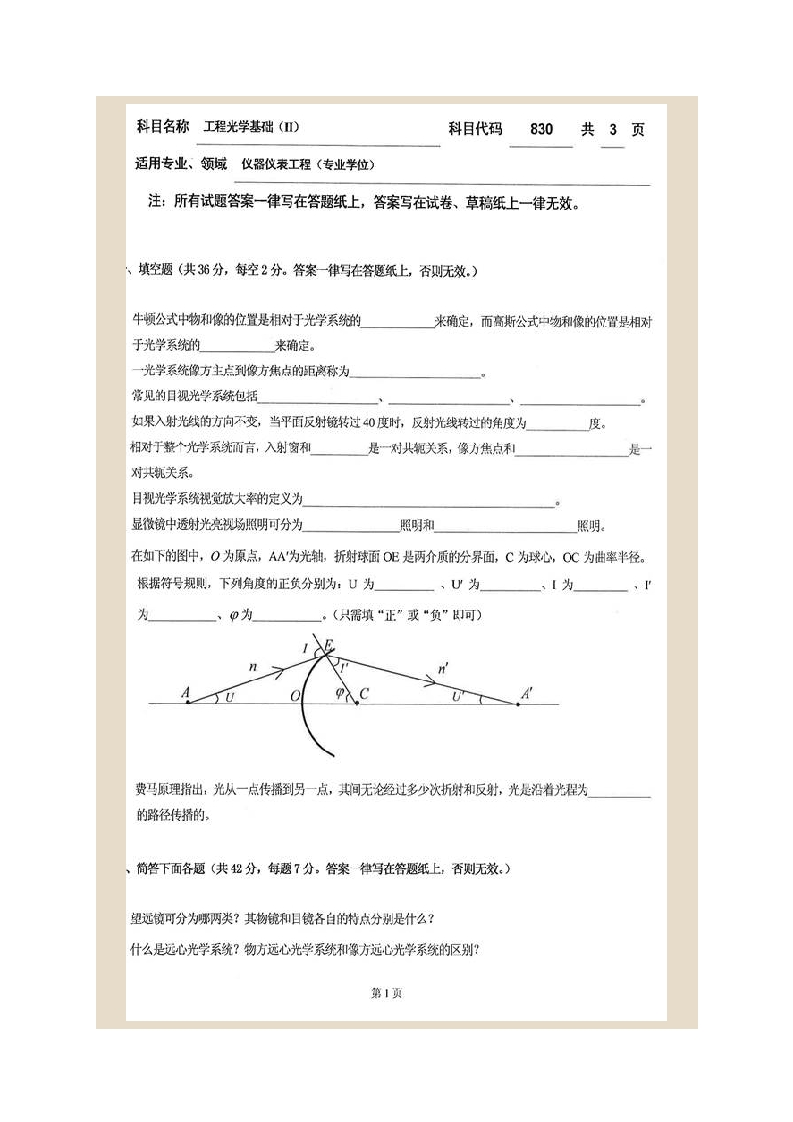 科目名称 工程光学基础（II） 科目代码 830 共 3 页
适用专业、领域 仪器仪表工程（专业学位）
注：所有试题答案一律写在答题纸上，答案写在试卷、草稿纸上一律无效。
、填空题（共36分，每空2分。答案一律写在答题纸上，否则无效。）
牛顿公式中物和像的位置是相对于光学系统的__________来确定，而高斯公式中物和像的位置是相对
于光学系统的__________来确定。
一光学系统像方主点到像方焦点的距离称为__________。
常见的目视光学系统包括__________、__________、__________。
如果入射光线的方向不变，当平面反射镜转过40度时，反射光线转过的角度为__________度。
相对于整个光学系统而言，入射窗和__________是一对共轭关系，像方焦点和__________是一
对共轭关系。
目视光学系统视觉放大率的定义为__________。
显微镜中透射光亮视场照明可分为__________照明和__________照明。
在如下的图中，O为原点，AA′为光轴，折射球面OE是两介质的分界面，C为球心，OC为曲率半径。
根据符号规则，下列角度的正负分别为：U为__________、U′为__________、I为__________、I′
为__________、φ为__________。（只需填“正”或“负”即可）
I E
n I′ n′
A U O φ C U′ A′
费马原理指出，光从一点传播到另一点，其间无论经过多少次折射和反射，光是沿着光程为__________
的路径传播的。
、简答下面各题（共42分，每题7分。答案一律写在答题纸上，否则无效。）
望远镜可分为哪两类？其物镜和目镜各自的特点分别是什么？
什么是远心光学系统？物方远心光学系统和像方远心光学系统的区别？
第1页